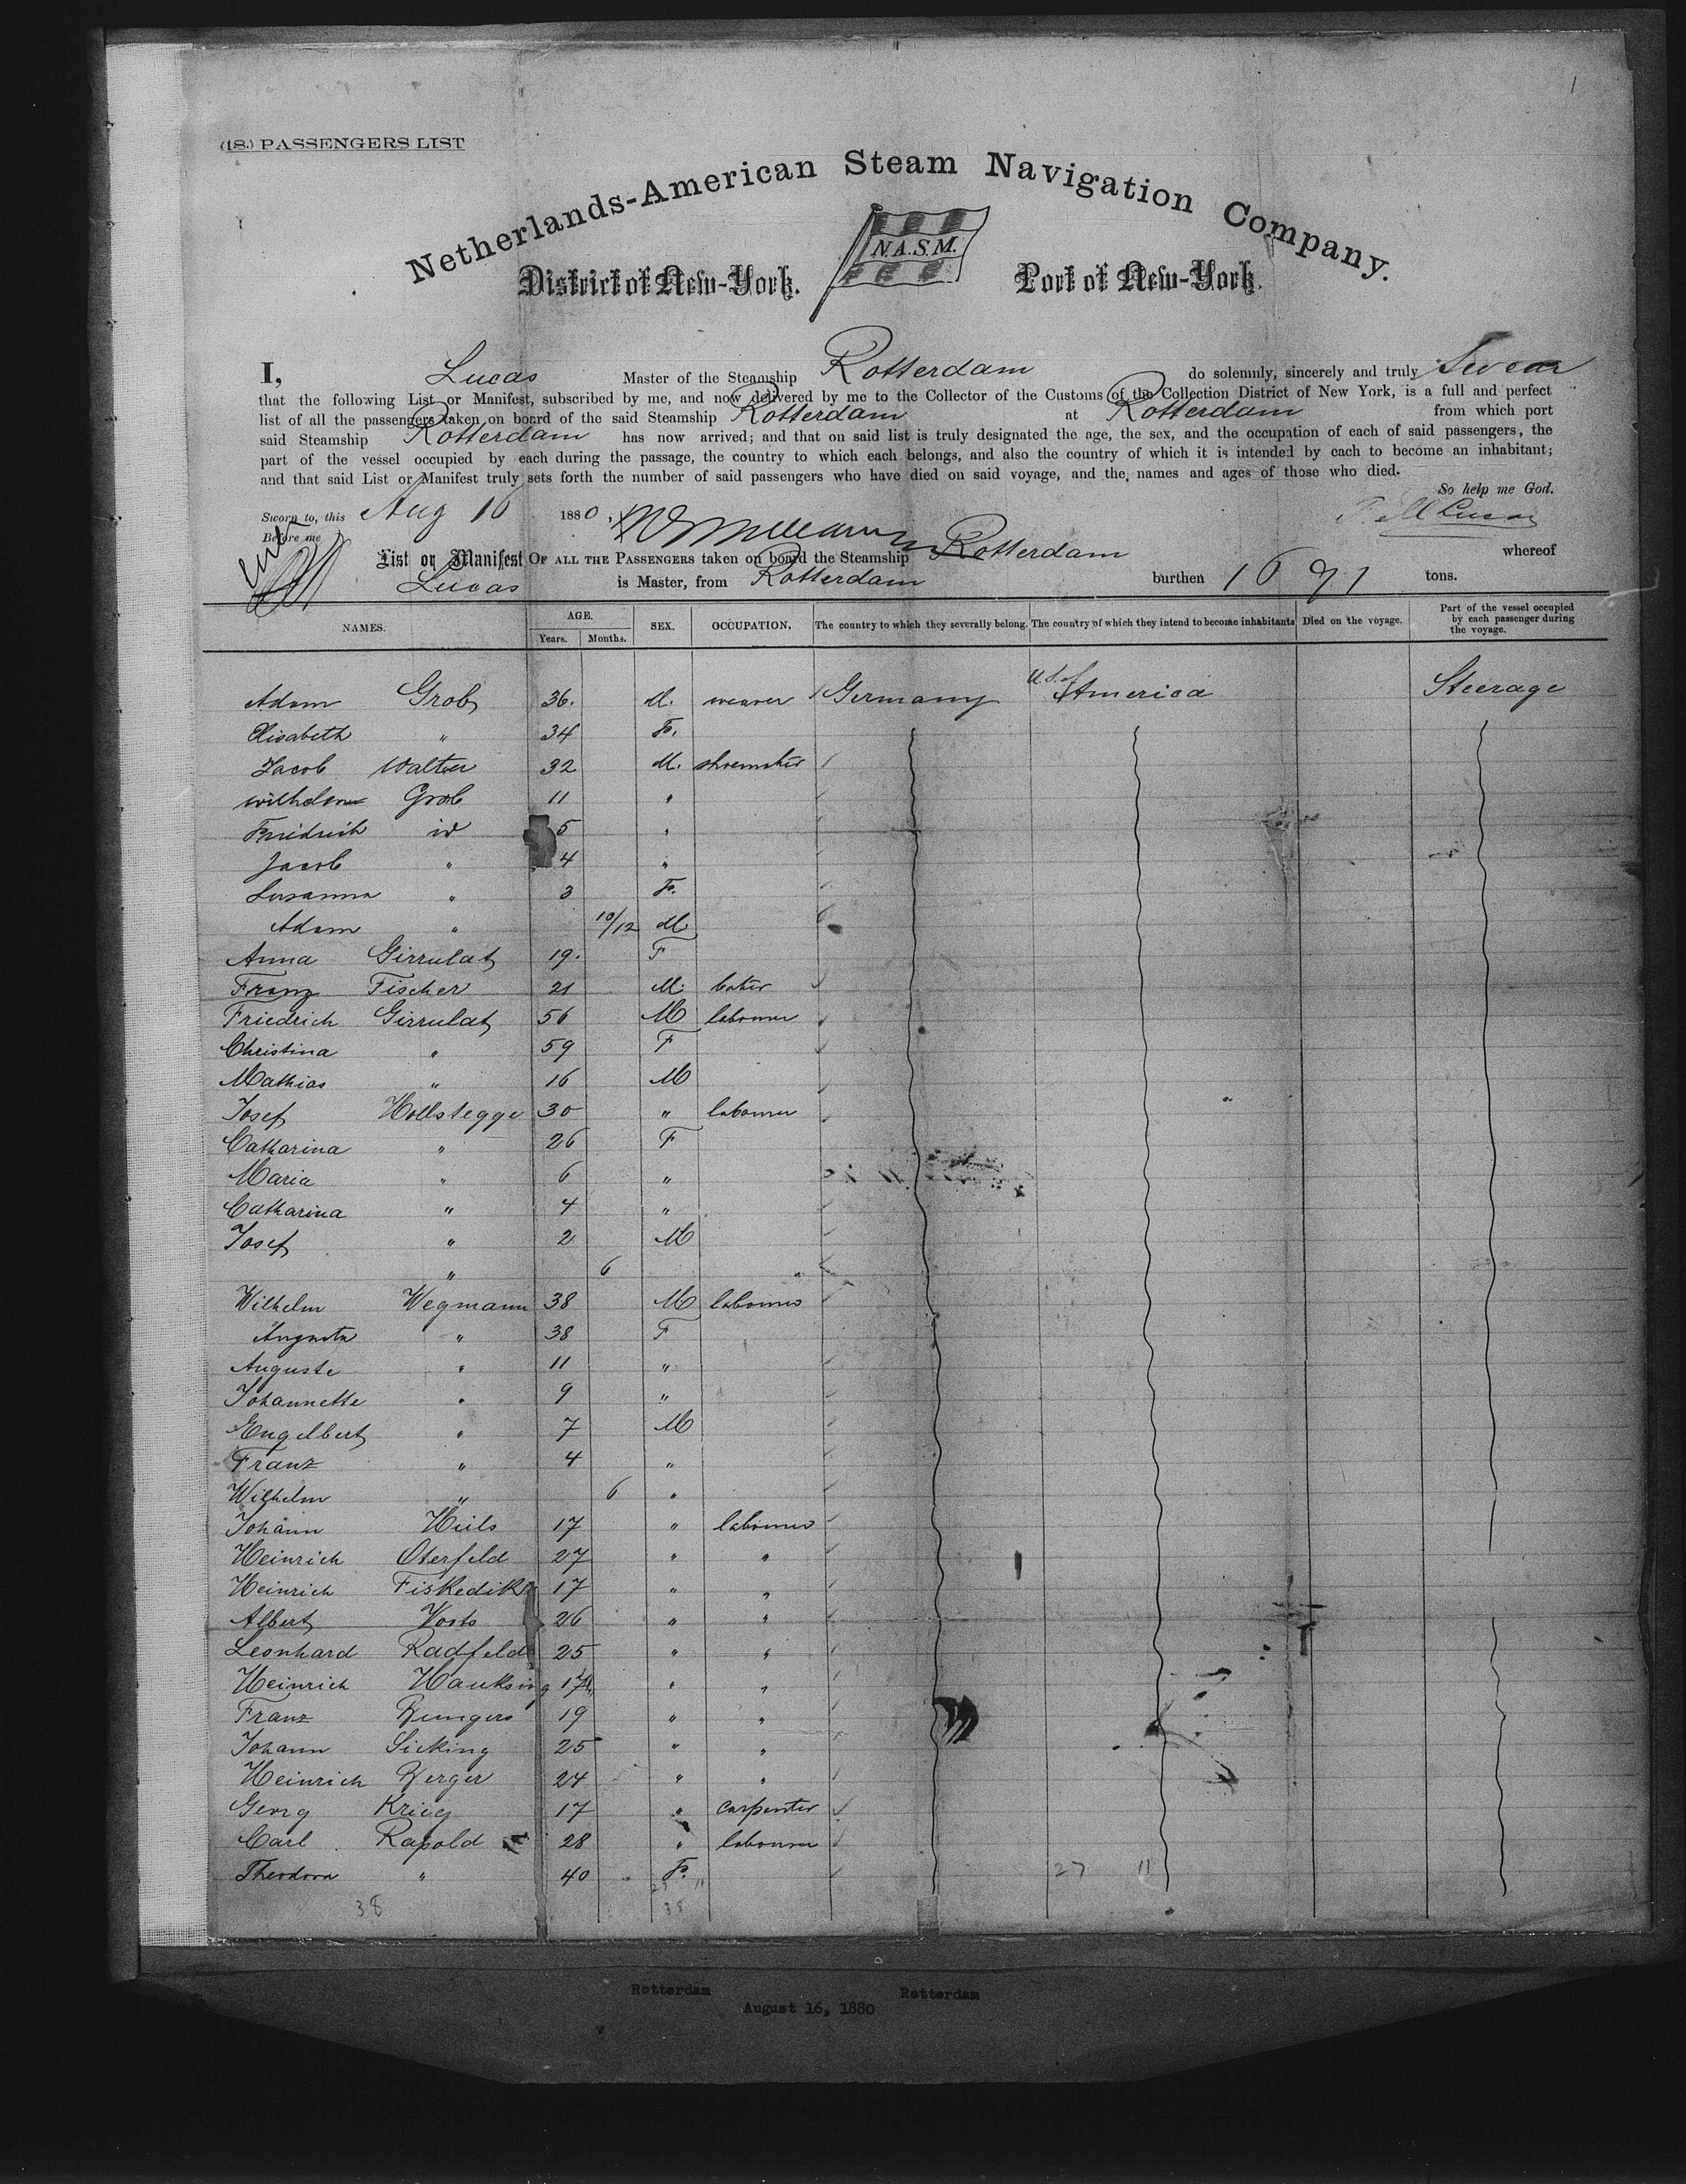 1
(18.) PASSENGERS LIST
Netherlands-American Steam Navigation Company.
N.A.S.M.
District of New-York. Port of New-York.
I, Lucas Master of the Steamship Rotterdam do solemnly, sincerely and truly Swear
that the following List or Manifest, subscribed by me, and now delivered by me to the Collector of the Customs of the Collection District of New York, is a full and perfect
list of all the passengers taken on board of the said Steamship Rotterdam at Rotterdam from which port
said Steamship Rotterdam has now arrived; and that on said list is truly designated the age, the sex, and the occupation of each of said passengers, the
part of the vessel occupied by each during the passage, the country to which each belongs, and also the country of which it is intended by each to become an inhabitant;
and that said List or Manifest truly sets forth the number of said passengers who have died on said voyage, and the names and ages of those who died.
So help me God.
Sworn to, this Aug 16 1880.
Before me
List or Manifest OF ALL THE PASSENGERS taken on board the Steamship Rotterdam whereof
Lucas is Master, from Rotterdam burthen 1691 tons.
NAMES. AGE. Years. Months. SEX. OCCUPATION. The country to which they severally belong. The country of which they intend to become inhabitants Died on the voyage. Part of the vessel occupied by each passenger during the voyage.
Adam Grob 36. M. weaver Germany U.S. of America Steerage
Elisabeth " 34 F.
Jacob Walter 32 M. shoemaker
Wilhelm Grob 11 "
Friedrich id 5 "
Jacob " 4 "
Susanna " 3 F.
Adam " 10/12 M
Anna Girrulat 19. F
Franz Fischer 21 M. baker
Friedrich Girrulat 56 M labourer
Christina " 59 F
Mathias " 16 M
Josef Hollstegge 30 " labourer
Catharina " 26 F
Maria " 6 "
Catharina " 4 "
Josef " 2 M
" 6
Wilhelm Wegmann 38 M labourer
Augusta " 38 F
Auguste " 11 "
Johannette " 9 "
Engelbert " 7 M
Franz " 4 "
Wilhelm " 6 "
Johann Hüls 17 " labourer
Heinrich Oterfeld 27 " "
Heinrich Fiskedik 17 " "
Albert Vosts 26 " "
Leonhard Radfeld 25 " "
Heinrich Hauksing 17 " "
Franz 19 " "
Johann Sicking 25 " "
Heinrich Berger 24 " "
Georg Krieg 17 " carpenter
Carl Rapold 28 " labourer
Theodora " 40 F.
27 11
27 11
38
38
Rotterdam Rotterdam
August 16, 1880